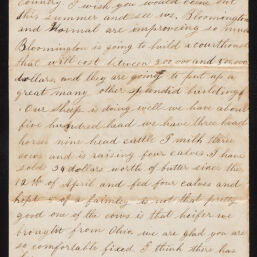 country. I wish you would come out
this summer and see us. Bloomington
and Normal are improving so much
Bloomington is going to build a courthouse
that will cost between 200,000 and 300,000
dollars, and they are going to put up a
great many other splendid buildings
Our sheep is doing well we have about
five hundred head we have three head
horses nine head cattle I milk three
cows and is raising four calves. I have
sold 34 dollars worth of butter since the
12th of April and fed four calves and
kept of a family is not that pretty
good one of the cows is that heifer we
brought from Ohio we are glad you are
so comfortable fixed. I think there has